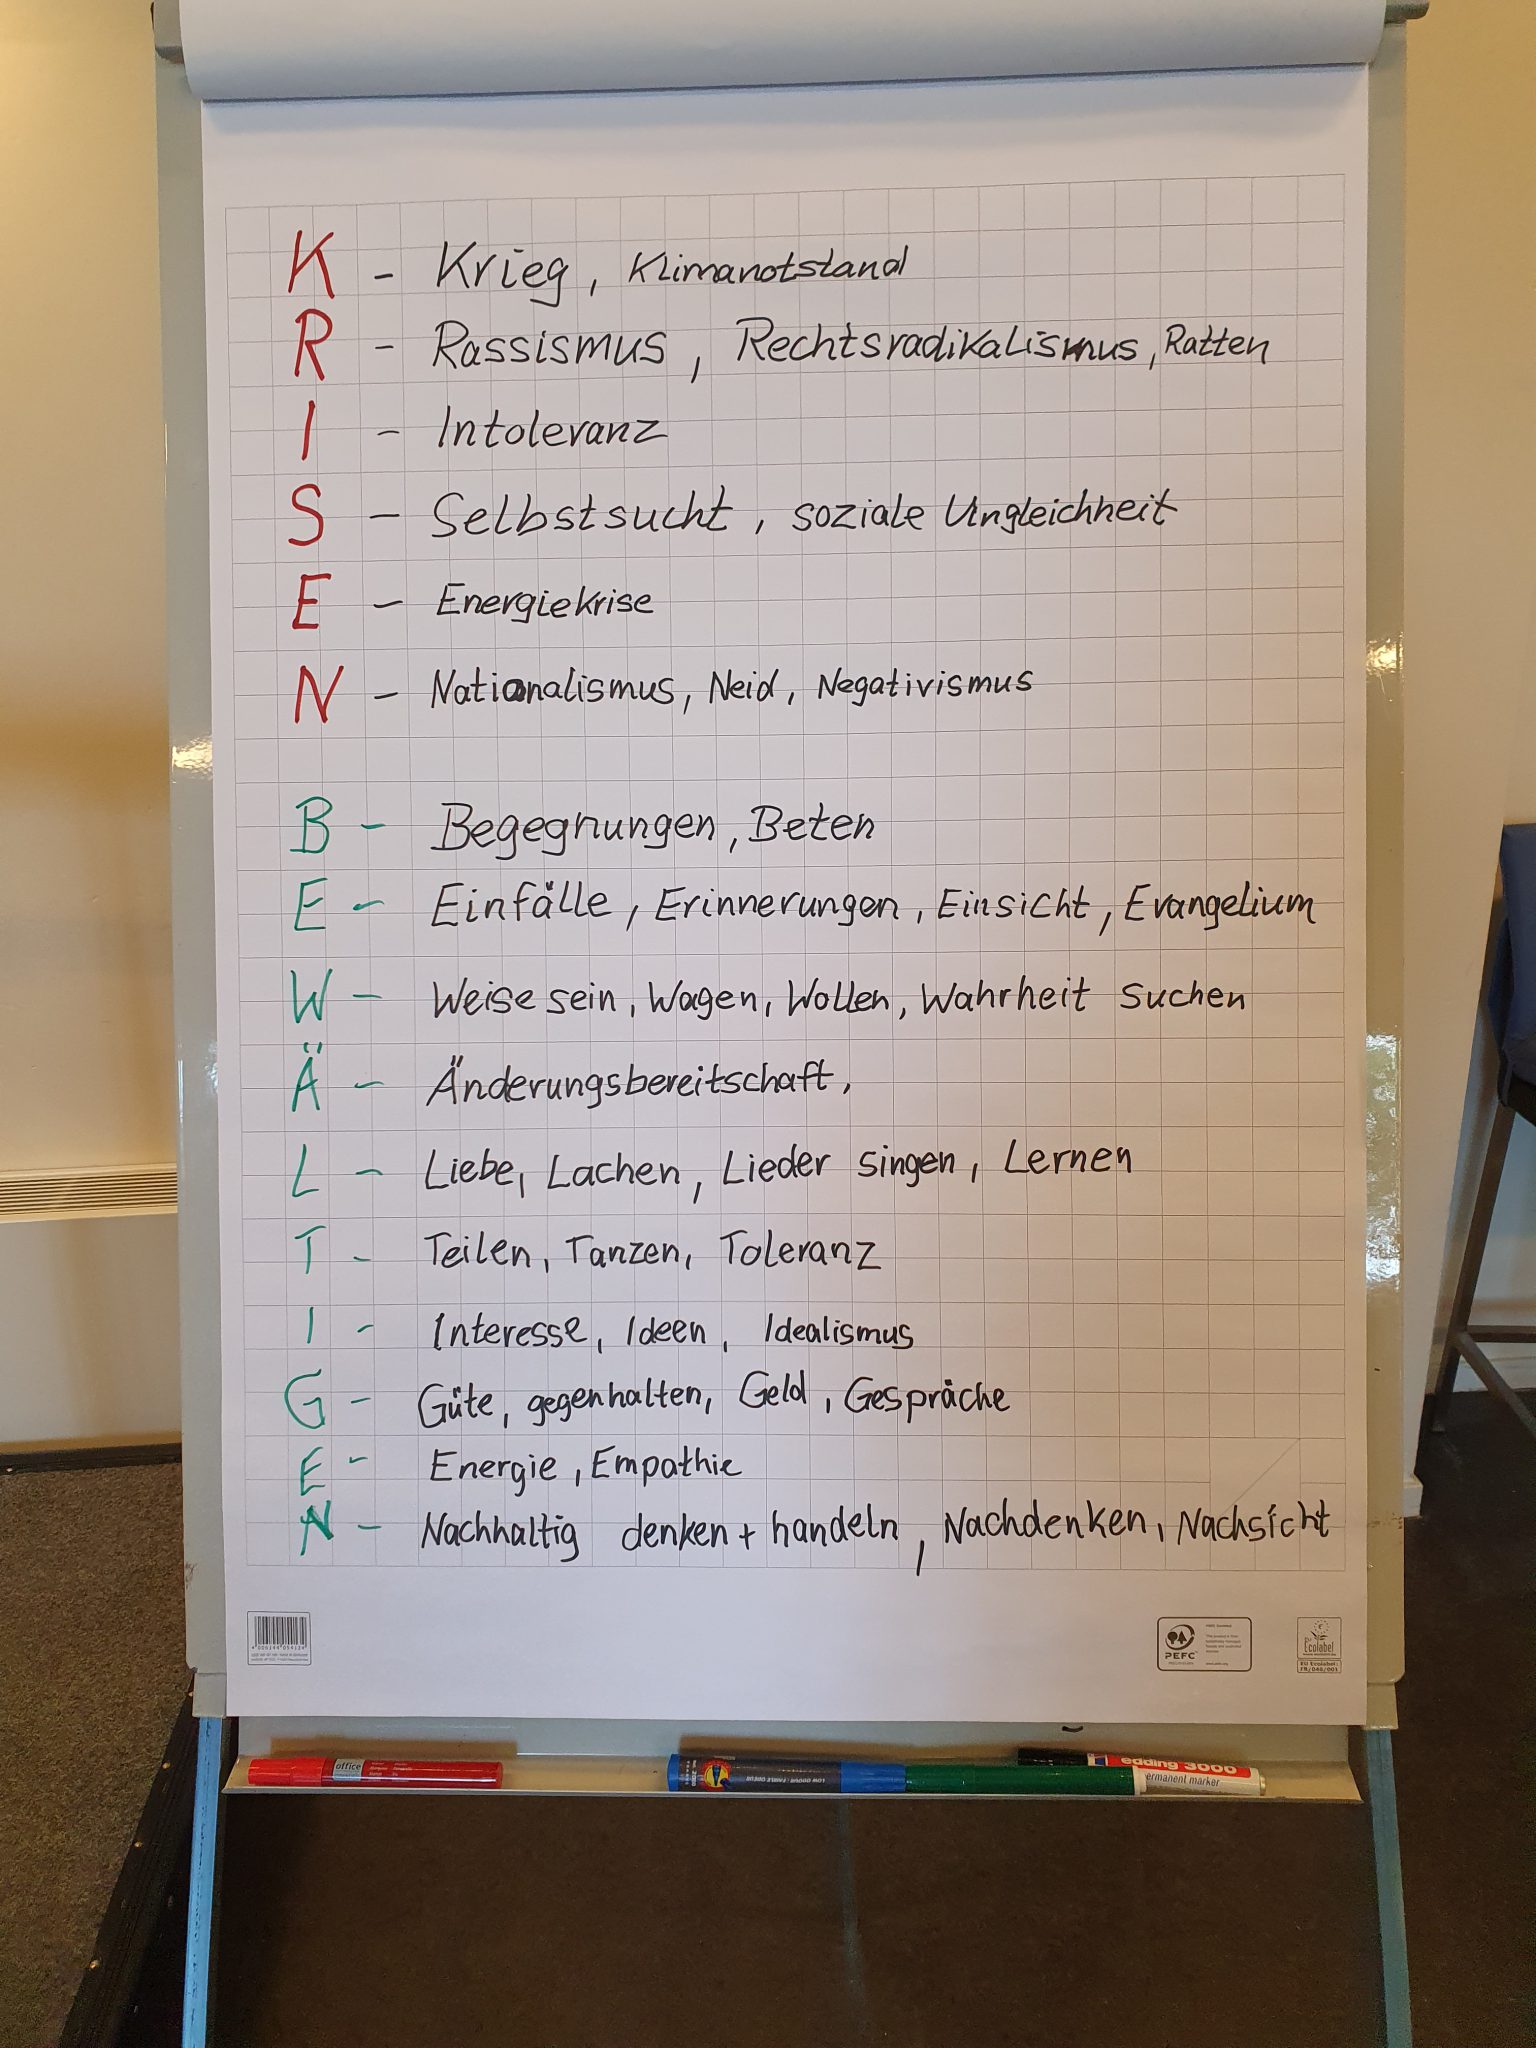 K - Krieg, Klimanotstand
R - Rassismus, Rechtsradikalismus, Ratten
I - Intoleranz
S - Selbstsucht, soziale Ungleichheit
E - Energiekrise
N - Nationalismus, Neid, Negativismus
B - Begegnungen, Beten
E - Einfälle, Erinnerungen, Einsicht, Evangelium
W - Weise sein, Wagen, Wollen, Wahrheit suchen
Ä - Änderungsbereitschaft,
L - Liebe, Lachen, Lieder singen, Lernen
T - Teilen, Tanzen, Toleranz
I - Interesse, Ideen, Idealismus
G - Güte, gegenhalten, Geld, Gespräche
E - Energie, Empathie
N - Nachhaltig denken + handeln, Nachdenken, Nachsicht
PEFC
Ecolabel
EU Ecolabel:
FR/048/001
office
edding 3000
permanent marker